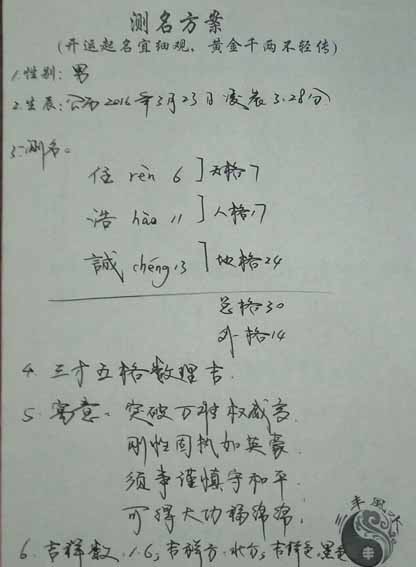 测名方案
(开运起名宜细观，黄金千两不轻传)
1.性别：男
2.生辰：公历2016年3月23日凌晨3.28分
3.测名。
任 rèn 6 ]天格7
浩 hào 11 ]人格17
誠 chéng 13 ]地格24
总格30
外格14
4. 三才五格数理吉.
5. 寓意. 突破万难权威高.
刚性固执如英豪.
须事谨慎守和平.
可得大功福绵绵.
6. 吉祥数. 1.6; 吉祥方. 北方; 吉祥色.黑色
三丰風水